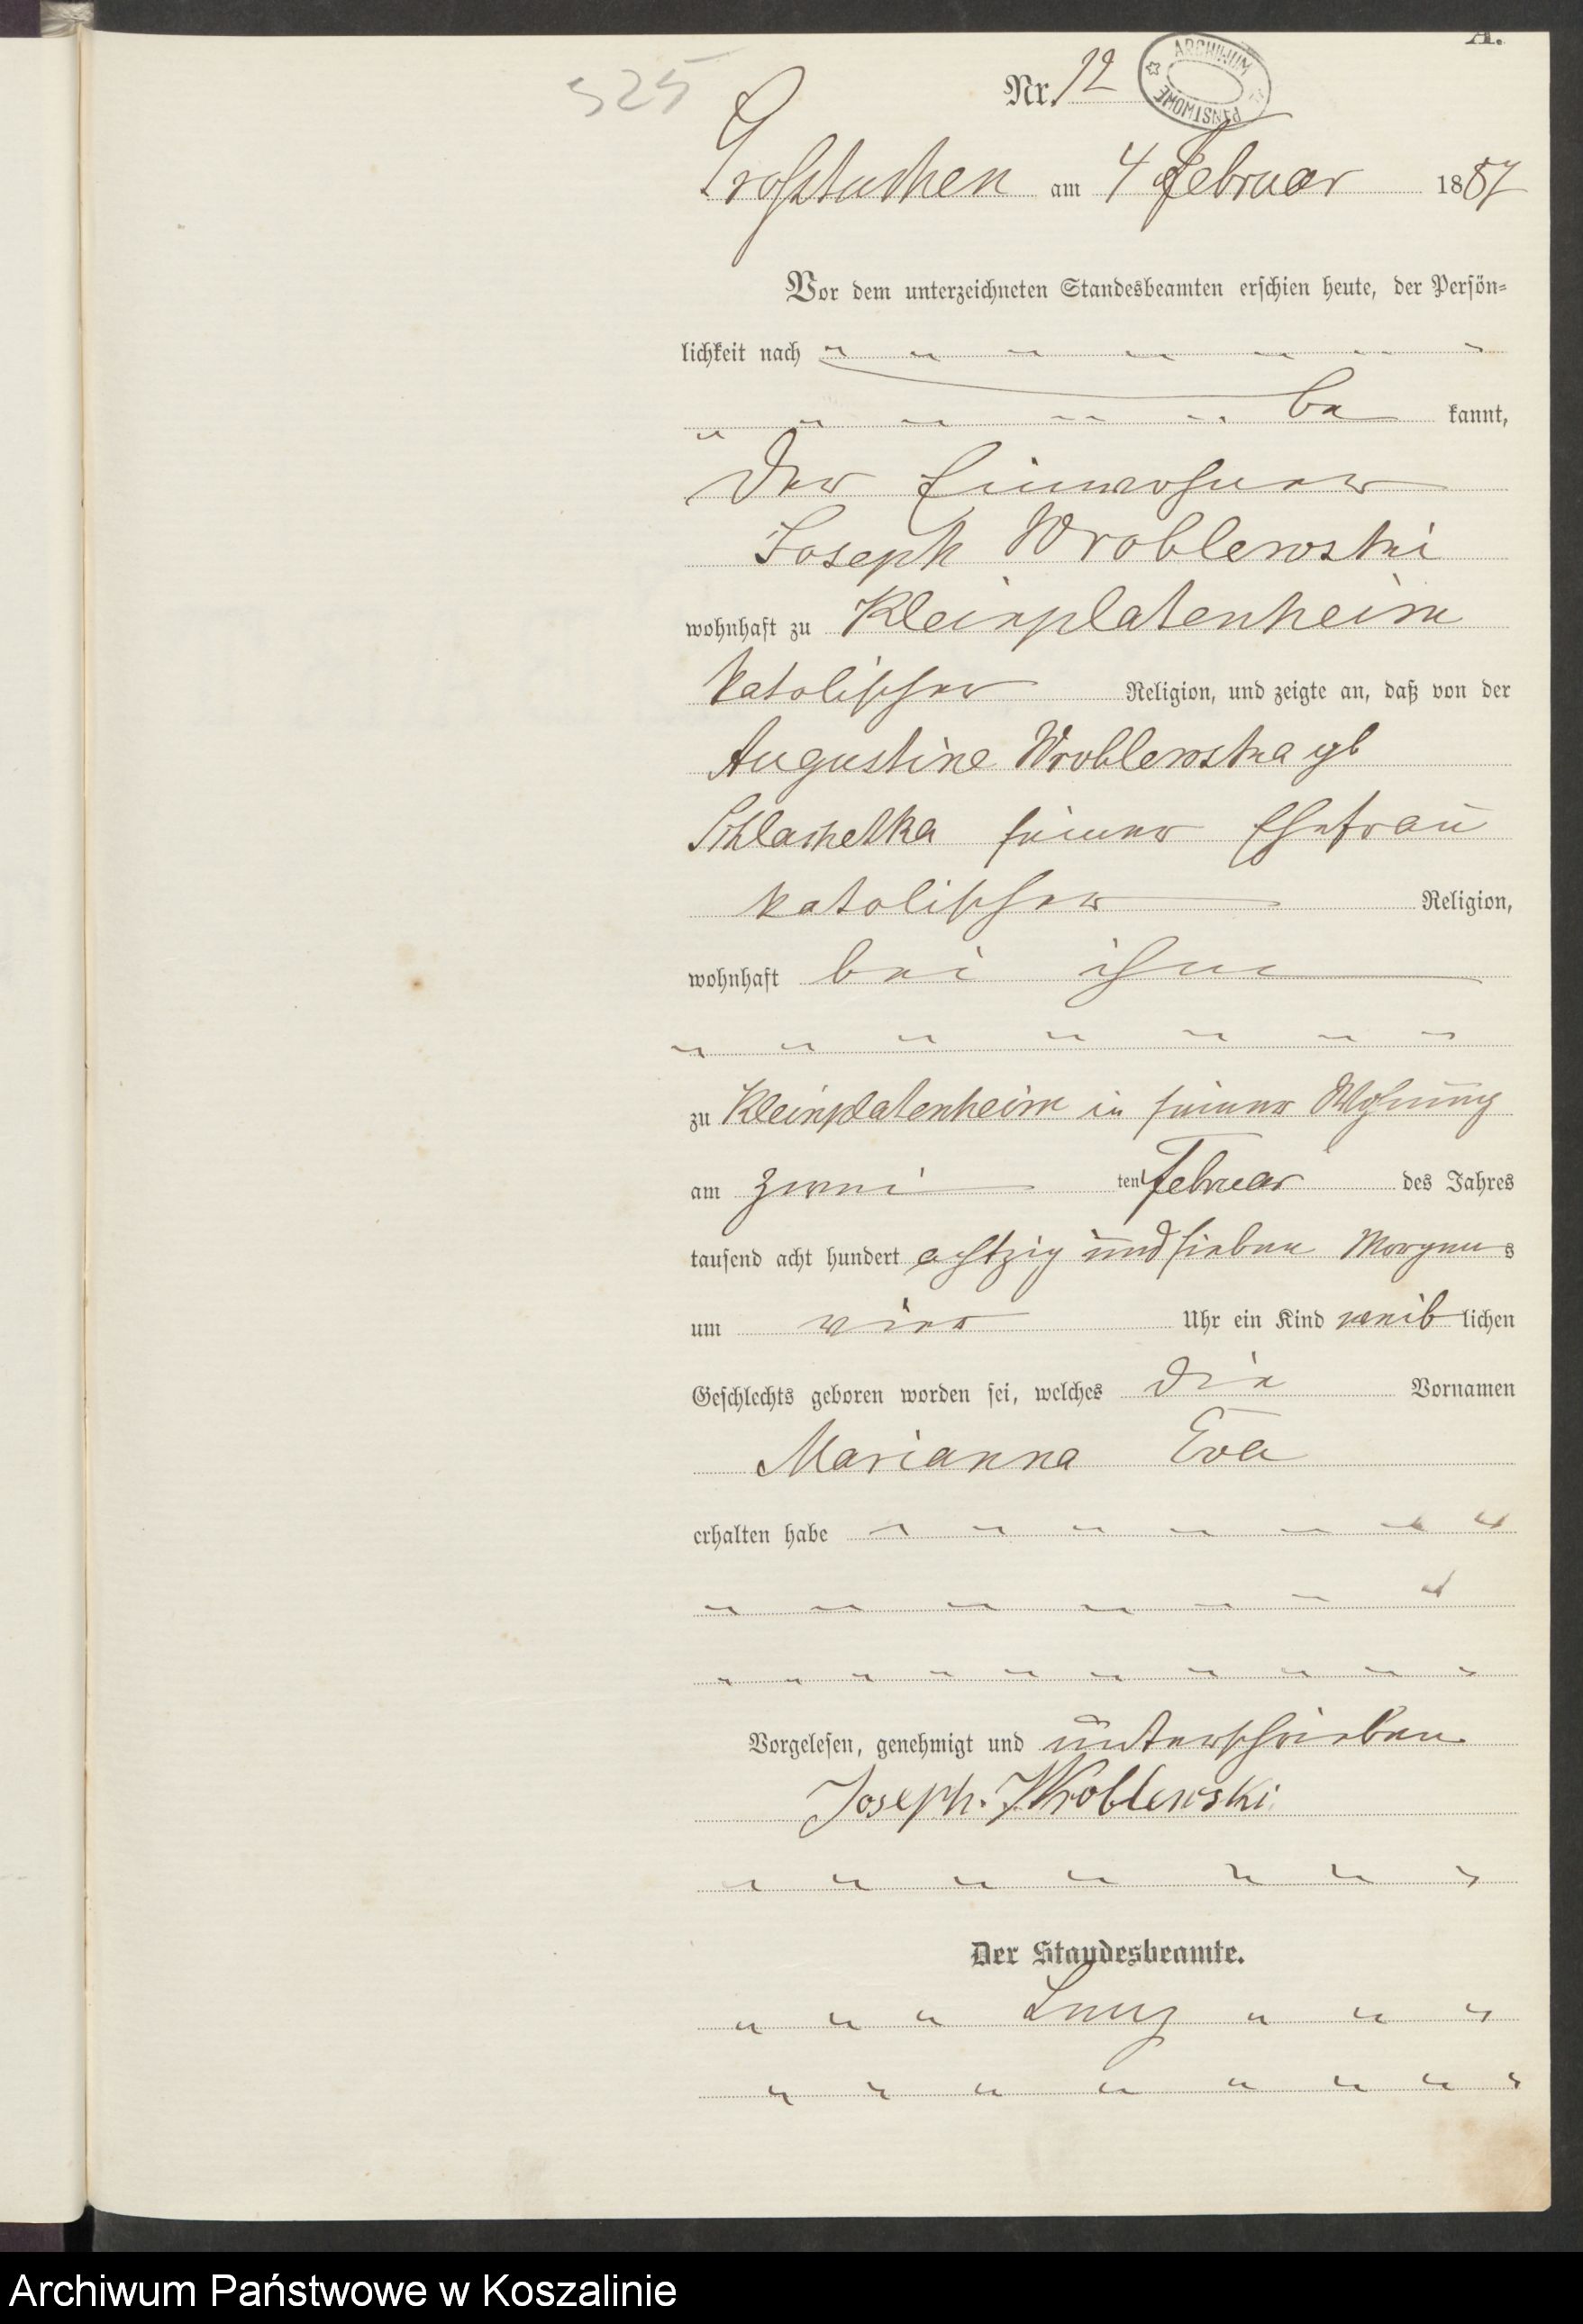 A.
325
Nr. 12
ARCHIWUM PAŃSTWOWE
Großtuchen am 4 Februar 1887
Vor dem unterzeichneten Standesbeamten erschien heute, der Persön-
lichkeit nach
be kannt,
der Einwohner
Joseph Wroblewski
wohnhaft zu Kleinplatenheim
katolischer Religion, und zeigte an, daß von der
Augustine Wroblewska gb
seiner Ehefrau
katolischer Religion,
wohnhaft bei ihm
zu Kleinplatenheim in seiner Wohnung
am zwei ten Februar des Jahres
tausend acht hundert achtzig und sieben Morgens
um vier Uhr ein Kind weib lichen
Geschlechts geboren worden sei, welches die Vornamen
Marianna Eva
erhalten habe
Vorgelesen, genehmigt und unterschrieben
Joseph. Wroblewski
Der Standesbeamte.
Archiwum Państwowe w Koszalinie